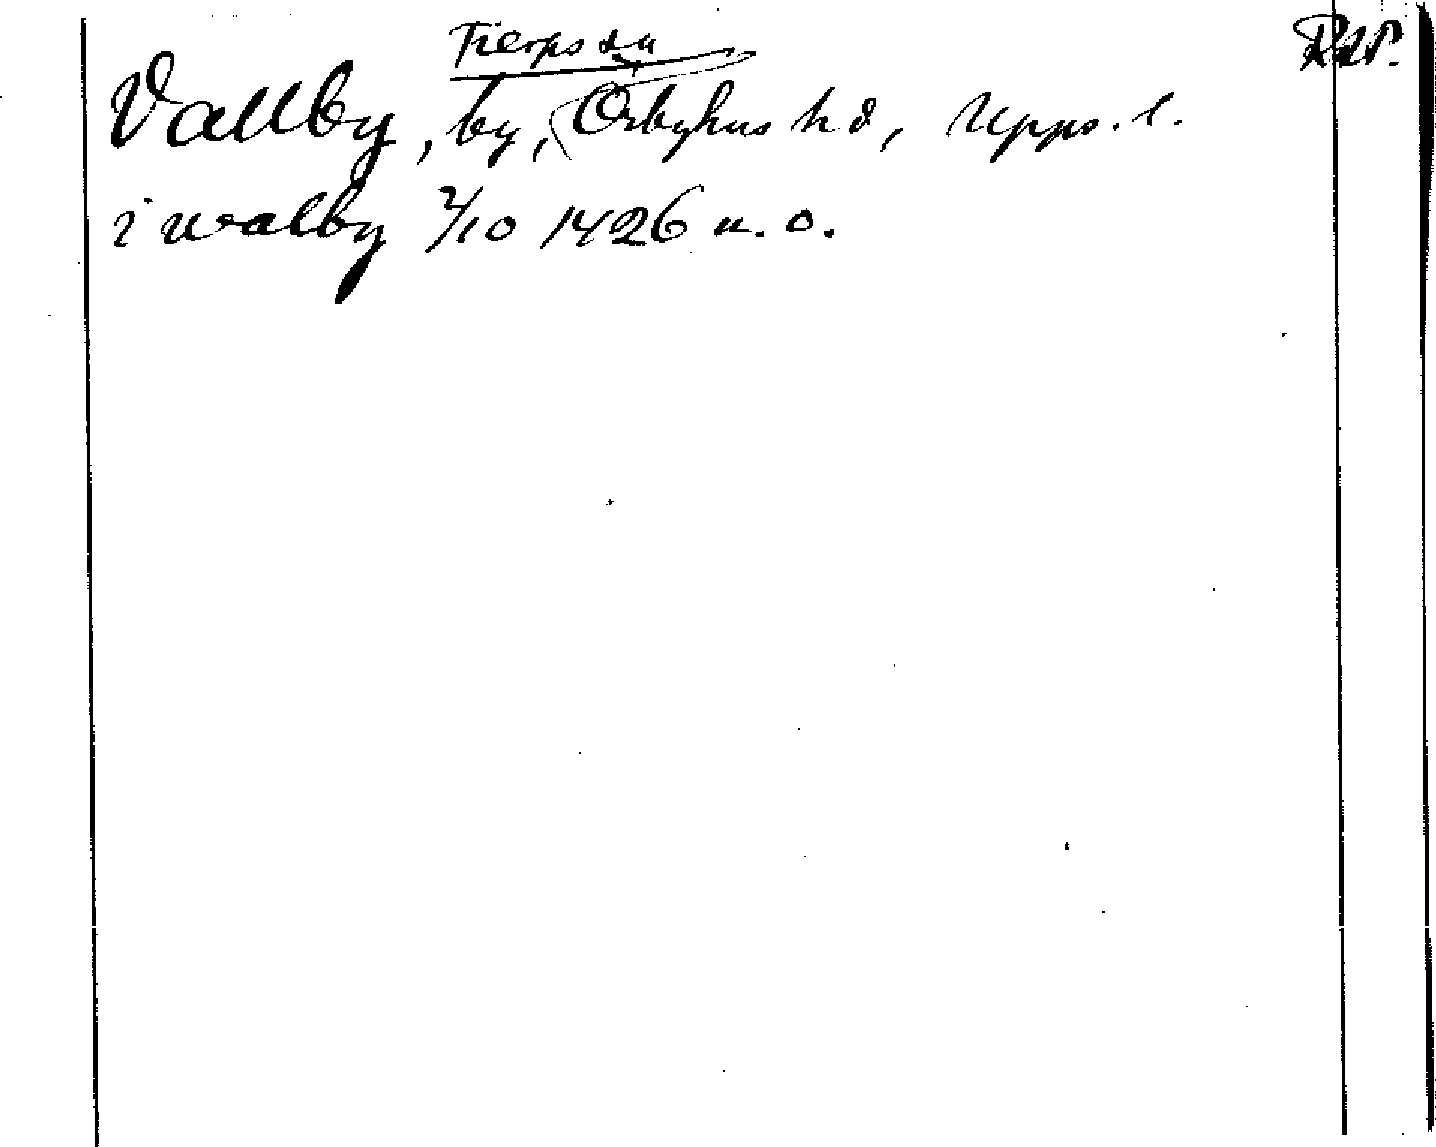 Tierps sn
Vallby, by, Örbyhus hd, Upps. l.
i walby 2/10 1426 n. o.